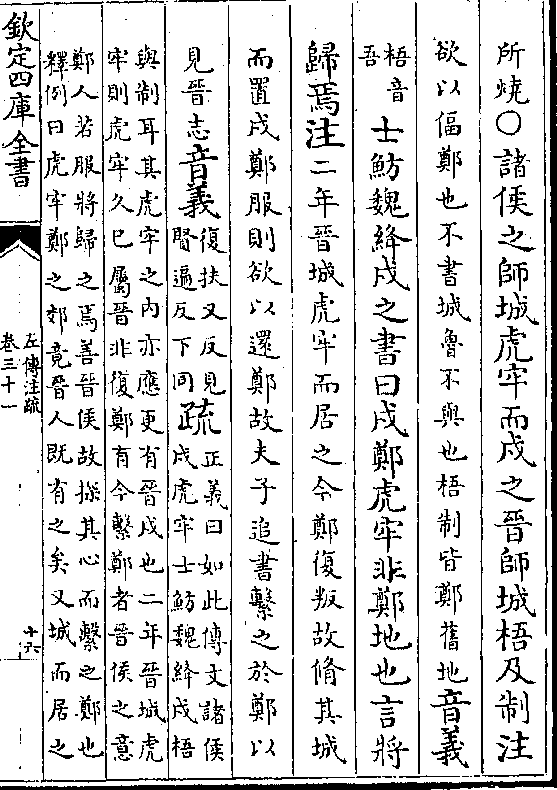 所燒○諸侯之師城虎牢而戍之晉師城梧及制注
欲以偪鄭也不書城魯不與也梧制皆鄭舊地音義
梧音
吾
士魴魏絳戍之書曰戍鄭虎牢非鄭地也言將
歸焉注二年晉城虎牢而居之今鄭復叛故脩其城
而置戍鄭服則欲以還鄭故夫子追書繫之於鄭以
見晉志音義
復扶又反見
賢遍反下同
疏
正義曰如此傳文諸侯
戍虎牢士魴魏絳戍梧
與制耳其虎牢之内亦應更有晉戍也二年晉城虎
牢則虎牢久已屬晉非復鄭有今繫鄭者晉侯之意
鄭人若服將歸之焉善晉侯故探其心而繫之鄭也
釋例曰虎牢鄭之郊竟晉人既有之矣又城而居之
欽定四庫全書
左傳注疏
卷三十一
十六